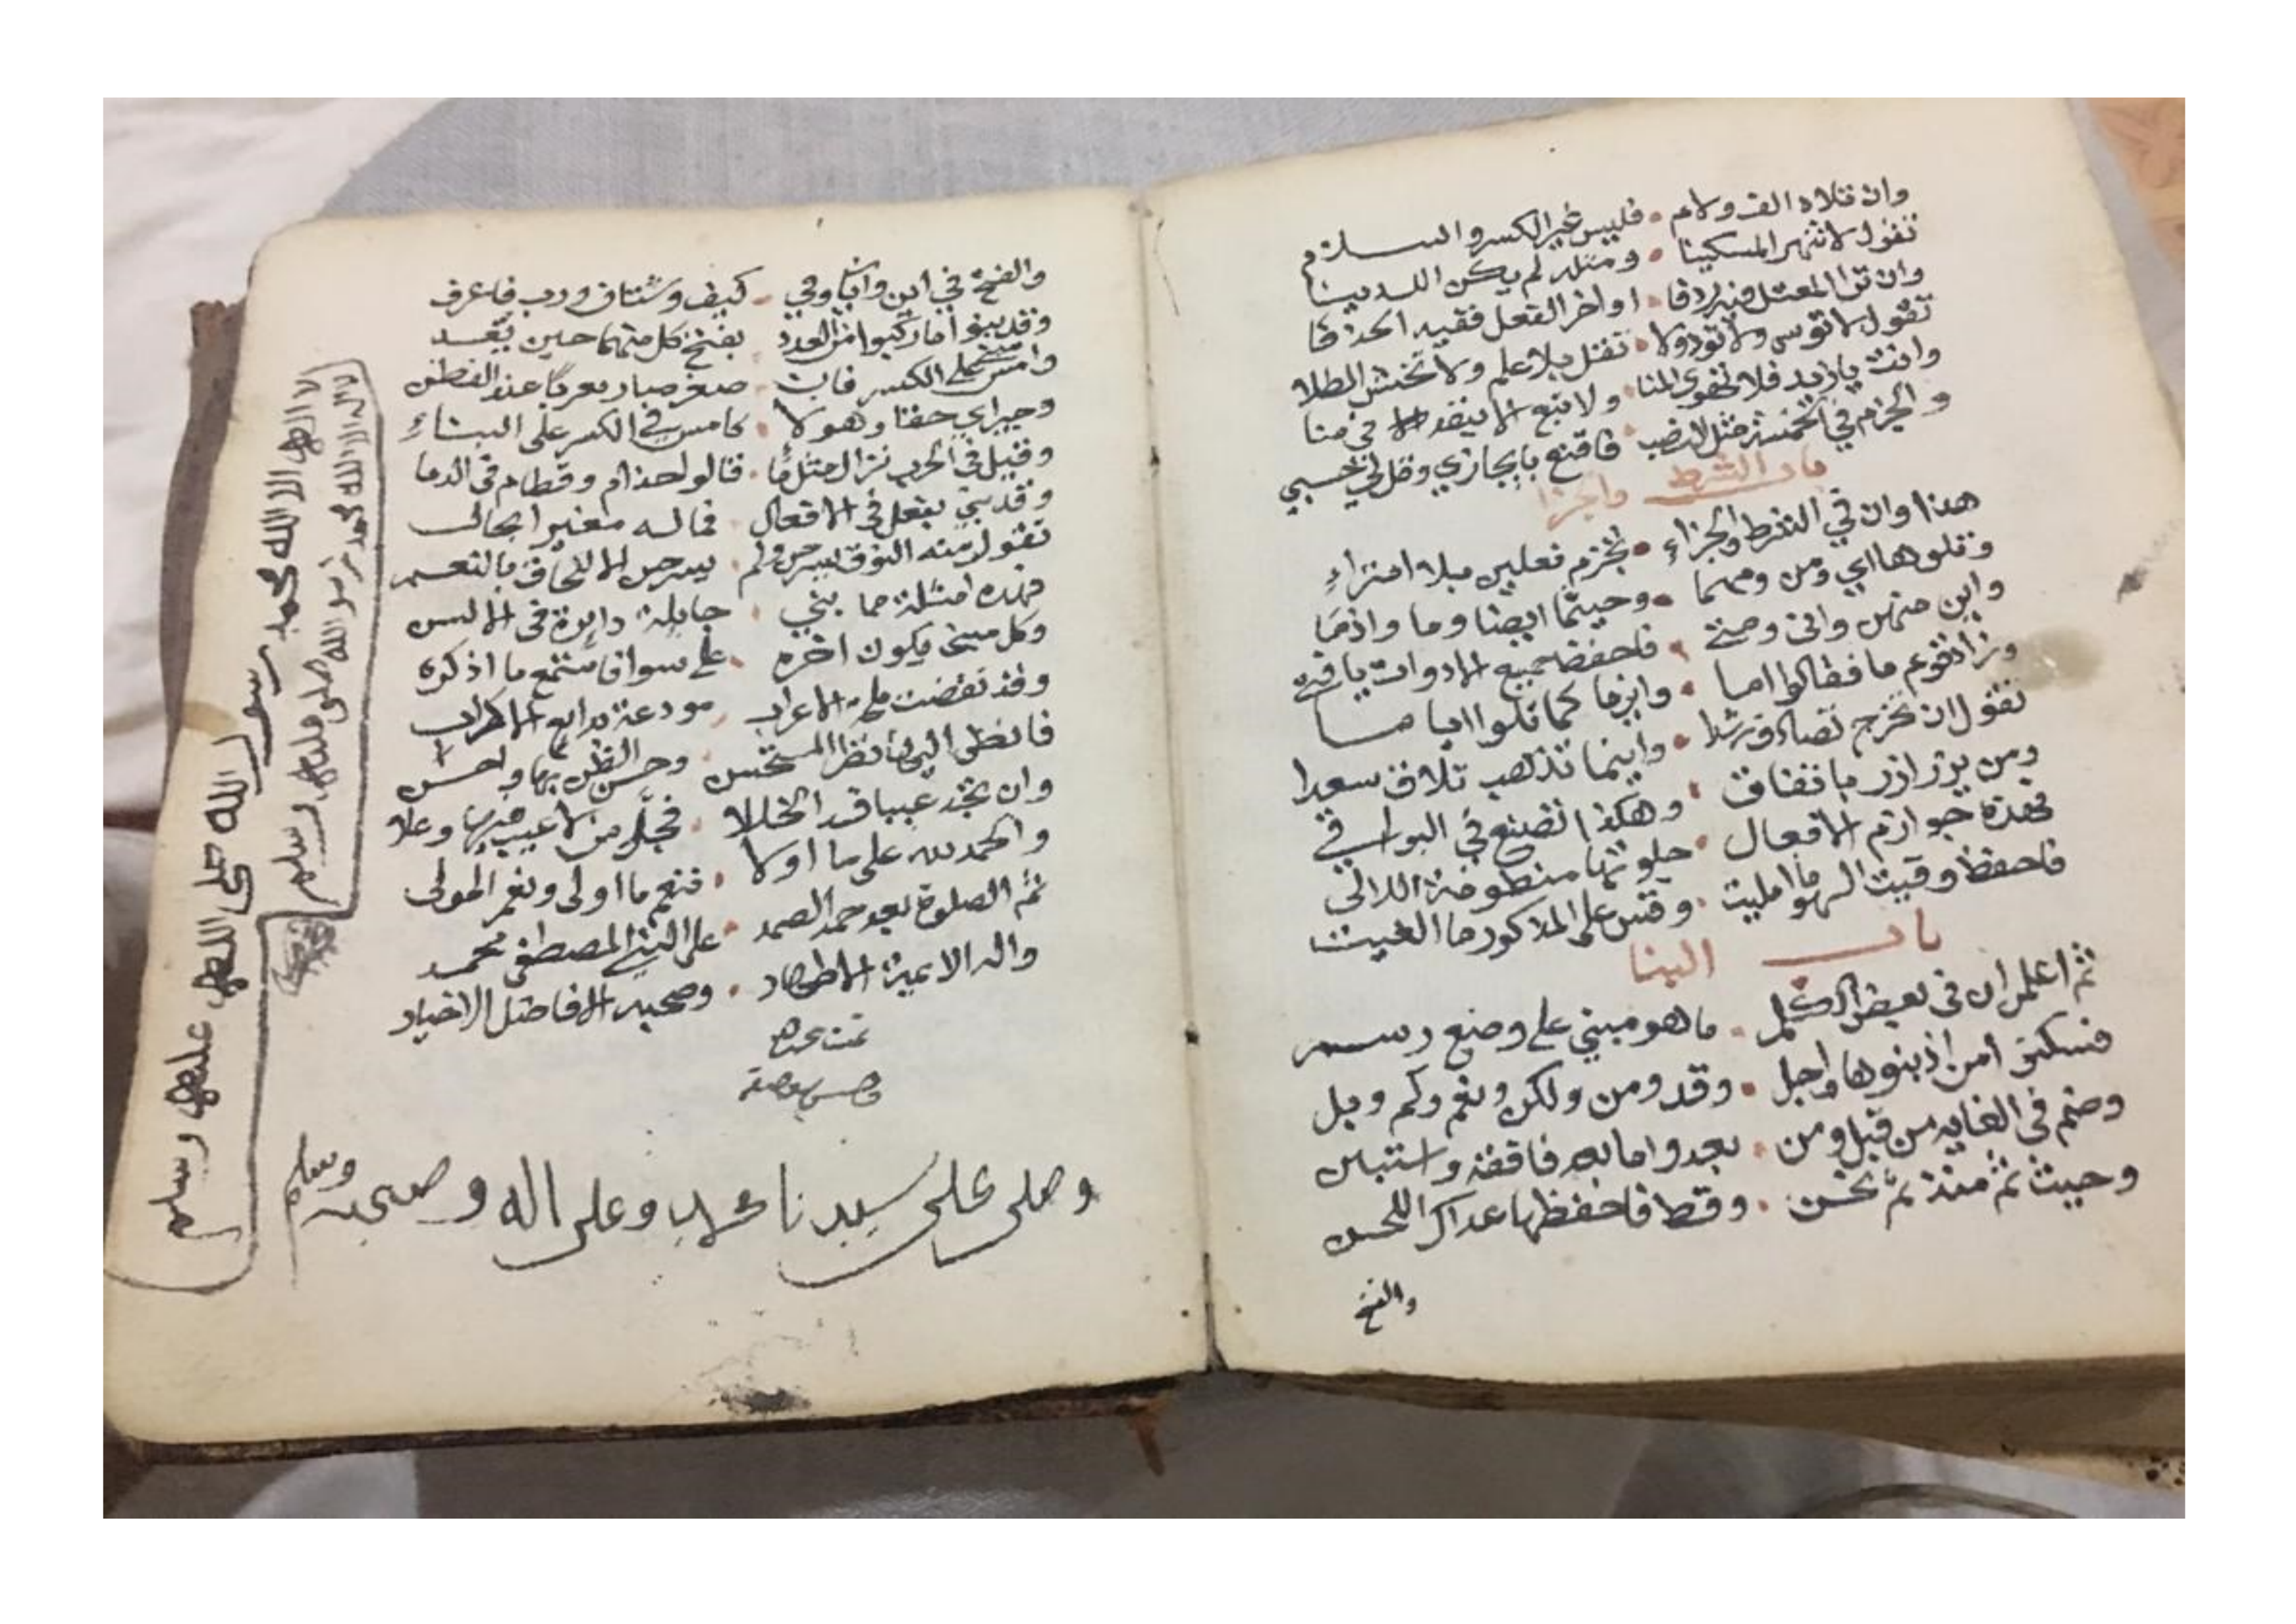 وان تلاه الف ولام . فليس غير الكسر والسلام
تقول لا تنتهر المسكينا . ومثله لم يكن الذينا
وان تر المعتل فيه ردفا . او اخر الفعل فقيه الحذفا
تقول لا تؤس ولا تؤذ ولا . تقل بلا علم ولا تخش الطلا
وانت يا زيد فلا تهوى المنا . ولا تبع الا بنقد في منا
والجزم في الخمسة مثل النصب . فاقنع بايجازي وقل لي حسبي
باب الشرط والجزا
هذا وان في الشرط والجزاء . تجزم فعلين بلا امتراء
وتلوها اي ومن ومهما . وحيثما ايضا وما واذما
واين منهن وانى ومتى . فاحفظ جميع الادوات يا فتى
وزاد قوم ما فقالوا اما . واينما كما تلوا اياما
تقول ان تخرج تصادف رشدا . واينما تذهب تلاق سعدا
ومن يزر ازر باتفاق . وهكذا تصنع في البواقي
فهذه جوازم الافعال . جلوتها منظومة اللالي
فاحفظ وقيت السهو ما امليت . وقس على المذكور ما الغيت
باب البنا
ثم اعلم ان في بعض الكلم . ما هو مبني على وضع رسم
فسكنوا من اذ بنوها واجل . وقد ومن ولكن ونعم وكم وبل
وضم في الغاية من قبل ومن . بعد واما بعد فاقفه واستبن
وحيث ثم منذ ثم نحن . وقط فاحفظها عداك اللحن
والفتح
والفتح في اين وايان وفي . كيف وشتان ورب فاعرف
وقد بنوا ما ركبوا من العدد . بفتح كل منهما حين يعد
وامس مبني على الكسر فان . صغر صار معربا عند الفطن
وجير اي حقا وهولا . كامس في الكسر على البناء
وقيل في الحرب نزال مثل ما . قالوا حذام وقطام في الدما
وقد بني يفعلن في الافعال . فما له مغير بحال
تقول منه النوق يسرحن ولم . يسرحن الا للحاق بالنعم
فهذه امثلة مما بني . جايلة دايرة في الالسن
وكل مبني يكون اخره . على سواء فاستمع ما اذكره
وقد تقضت ملحة الاعراب . مودعة بدايع الاعراب
فانظر اليها نظر المستحسن . وحسن الظن بها واحسن
وان تجد عيبا فسد الخللا . فجل من لا عيب فيه وعلا
والحمد لله على ما اولا . فنعم ما اولى ونعم المولى
ثم الصلوة بعد حمد الصمد . على النبي المصطفى محمد
واله الايمة الاطهار . وصحبه الافاضل الاخيار
تمت بحمد
وصلى على سيدنا محمد وعلى اله وصحبه وسلم
لا اله الا الله محمد رسول الله صلى الله عليه وسلم
لا اله الا الله محمد رسول الله صلى الله عليه وسلم